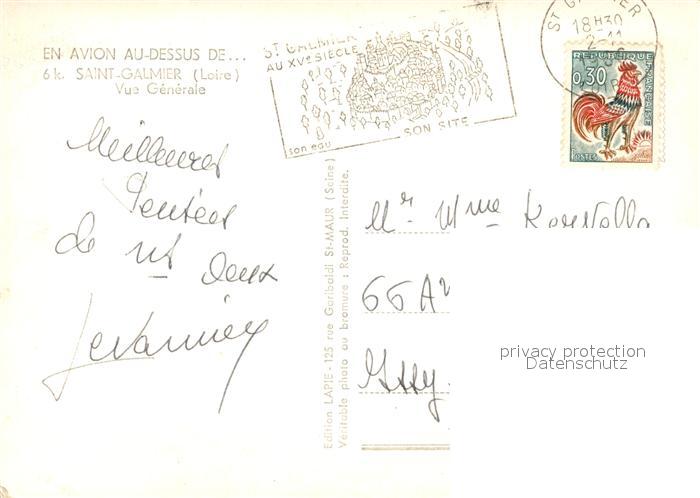 EN AVION AU-DESSUS DE...
6 k. SAINT-GALMIER (Loire)
Vue Générale
ST GALMIER
AU XVe SIÈCLE
son eau
SON SITE
ST GALMIER
18H30
2-11
REPUBLIQUE
FRANÇAISE
0,30
POSTES
Meilleures
Pensées
de nt deux
Edition LAPIE - 125 rue Garibaldi St-MAUR (Seine)
Véritable photo au bromure : Reprod. Interdite.
Mr Mme
66 Av
Issy.
privacy protection
Datenschutz